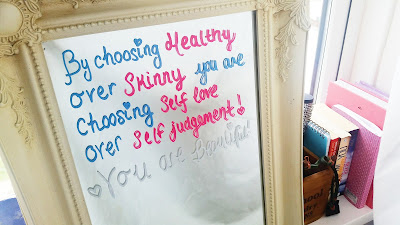 By choosing Healthy
over Skinny you are
Choosing Self love
over Self judgement!
You are Beautiful!